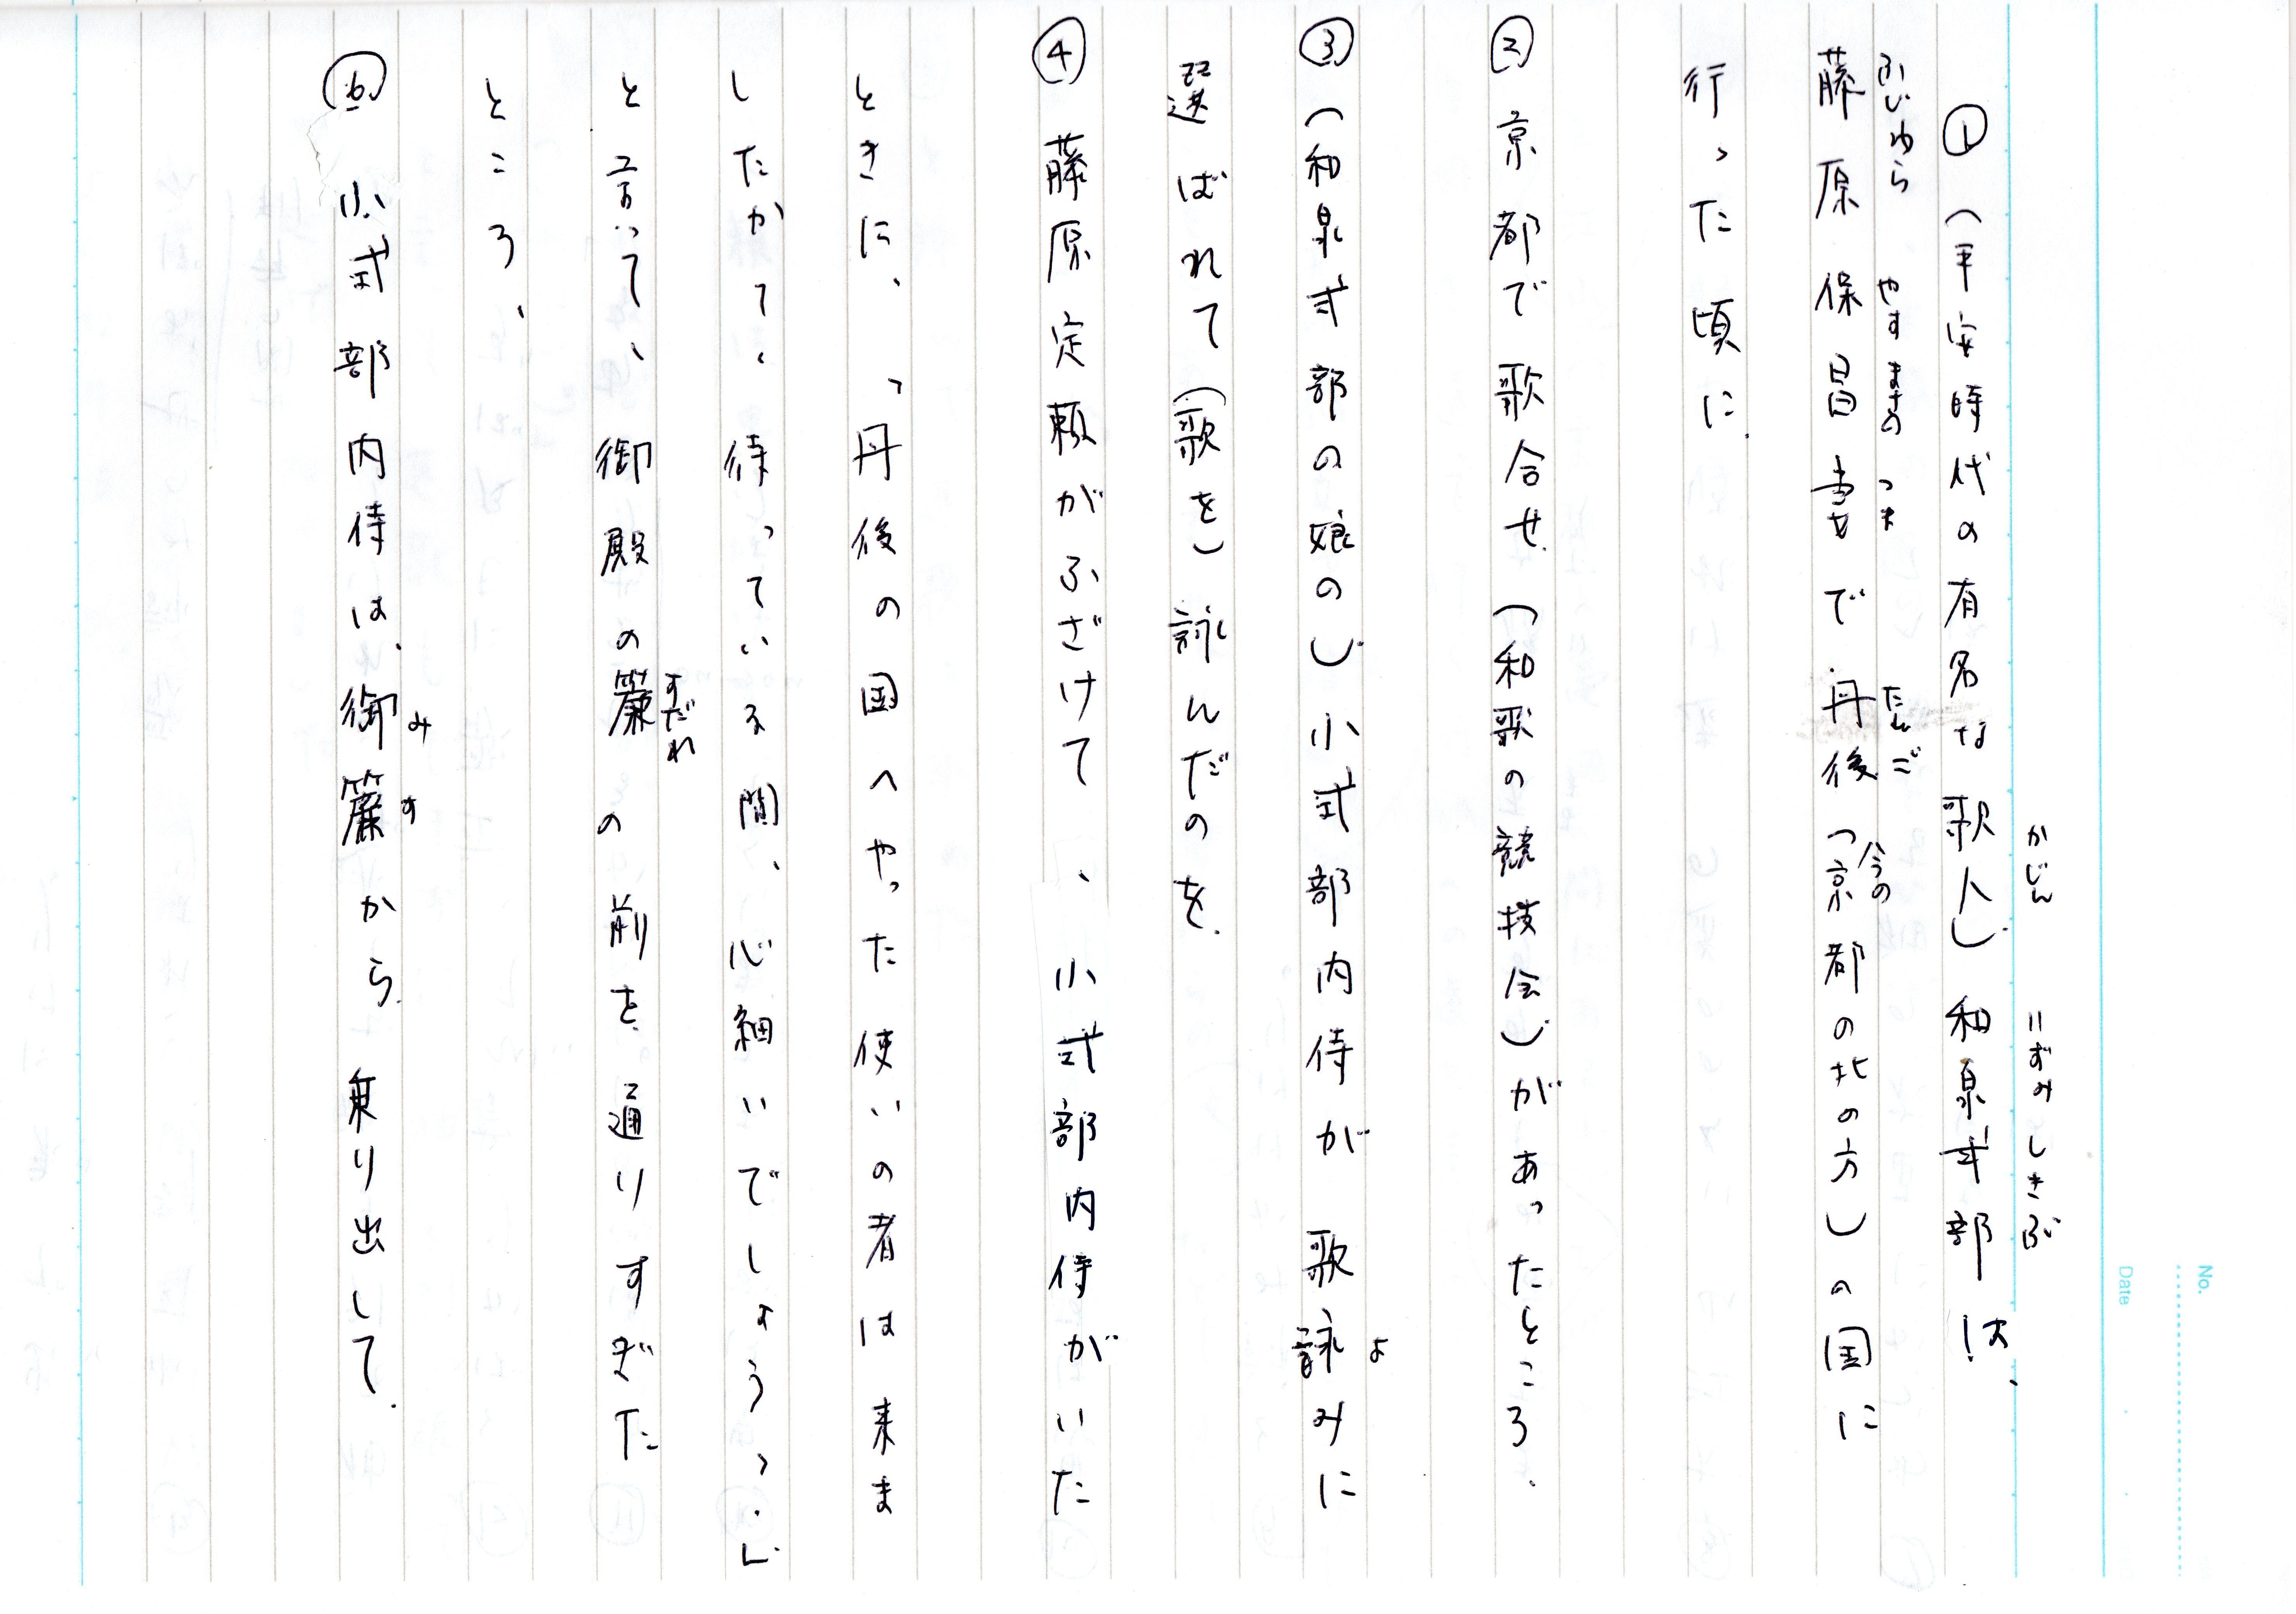 No.
Date
① (平安時代の有名な歌人) 和泉式部は、
かじん いずみしきぶ
藤原保昌妻で丹後(今の京都の北の方)の国に
ふじわら やすまさの つま たんご
行った頃に
② 京都で歌合せ(和歌の競技会)があったところ、
③ (和泉式部の娘の)小式部内侍が歌詠みに
よ
選ばれて(歌を)詠んだのを、
④ 藤原定頼がふざけて、小式部内侍がいた
ときに、「丹後の国へやった使いの者は来ま
したかて、待っている間、心細いでしょう。」
と言って、御殿の簾の前を通りすぎた
すだれ
ところ、
⑥ 小式部内侍は、御簾から乗り出して、
みす